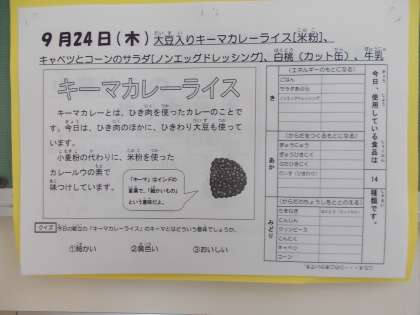 9月24日(木) 大豆入りキーマカレーライス[米粉]、
キャベツとコーンのサラダ[ノンエッグドレッシング]、白桃(カット缶)、牛乳
キーマカレーライス
キーマカレーとは、ひき肉を使ったカレーのことで
す。今日は、ひき肉のほかに、ひきわり大豆も使って
います。
小麦粉の代わりに、米粉を使った
カレールウの素で
味つけしています。
「キーマ」はインドの
言葉で、「細かいもの」
という意味だよ。
クイズ 今日の献立の「キーマカレーライス」のキーマとはどういう意味でしょうか。
①細かい ②黄色い ③おいしい
き
(エネルギーのもとになる)
ごはん
サラダあぶら
ノンエッグドレッシング
あか
(からだをつくるもとになる)
ぎゅうにゅう
ぎゅうひきにく
ぶたひきにく
みどり
(からだのちょうしをととのえる)
たまねぎ
にんじん
グリンピース
にんにく
キャベツ
コーン
今日、使用している食品は
14
種類です。